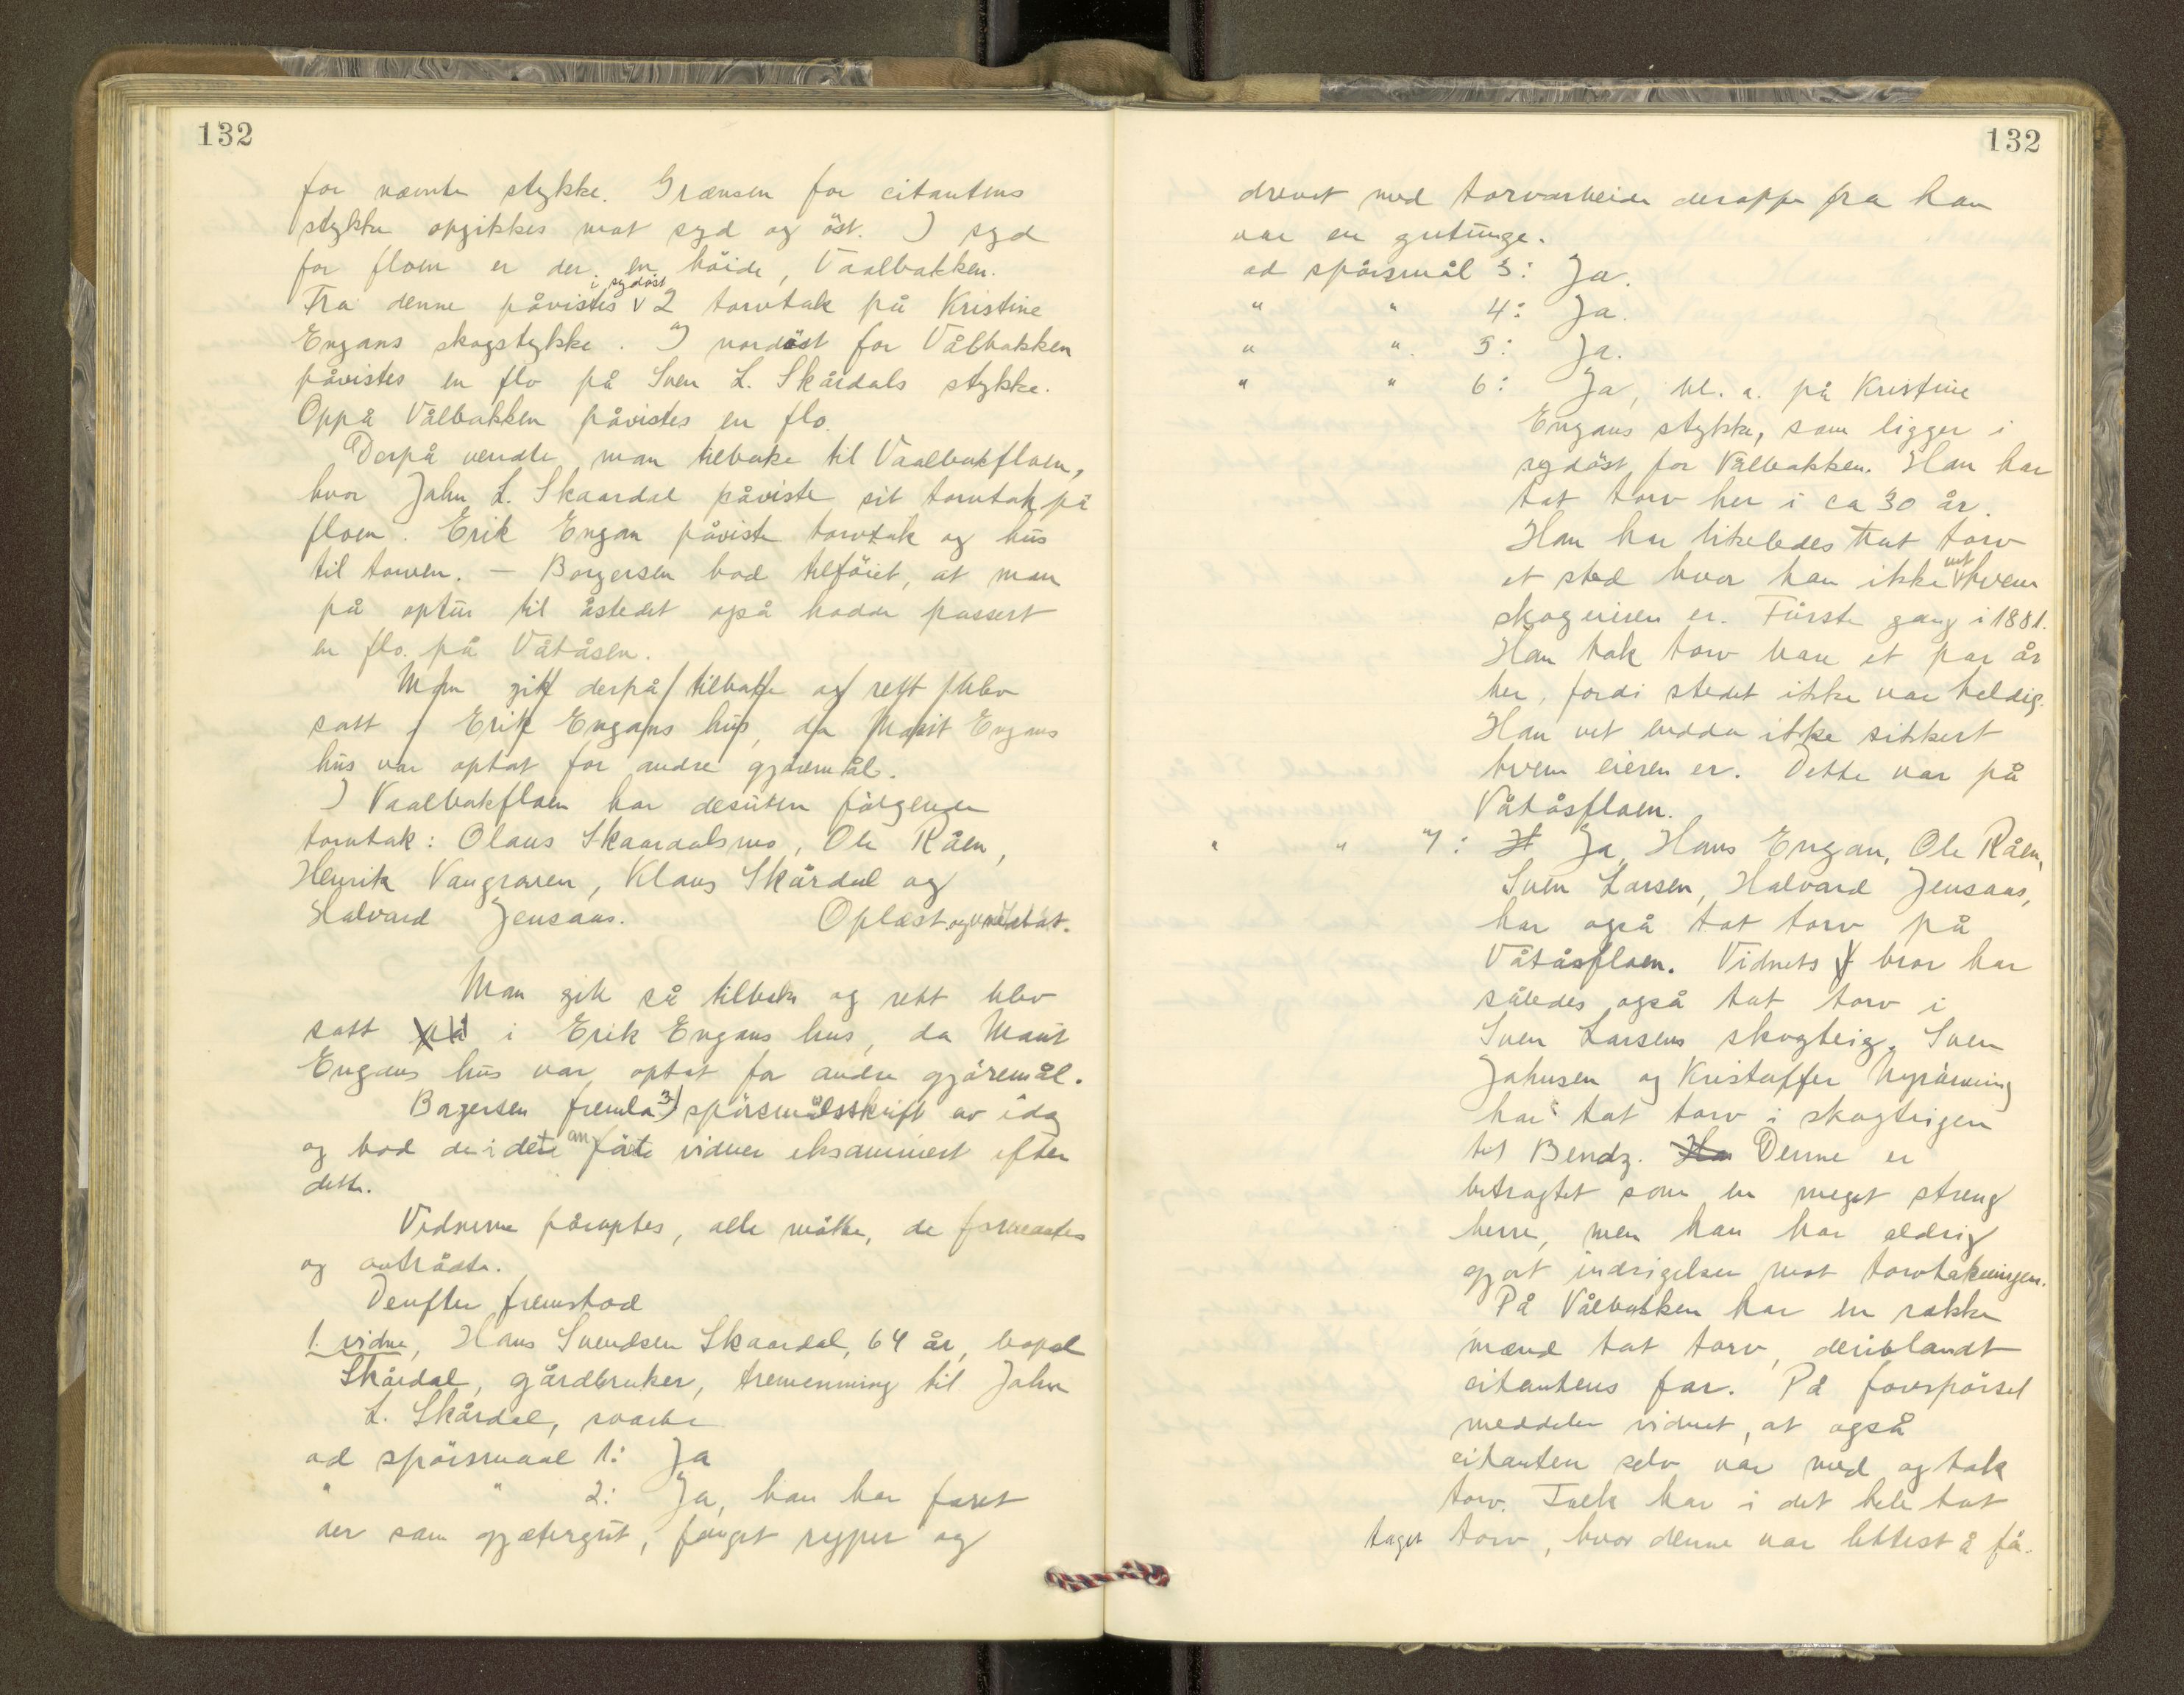 132
for nævnte stykke. Grænsen for citantens
stykke opgikkes mot syd og öst. I syd
for floen er der en höide, Vaalbakken.
i sydöst
Fra denne påvistes v 2 torvtak på Kristine
Engans skogstykke. I nordöst for Vålbakken
påvistes en flo på Sven L. Skårdals stykke.
Oppå Vålbakken påvistes en flo.
Derpå vendte man tilbake til Vaalbakfloen,
hvor John L. Skaardal påviste sit torvtak på
floen. Erik Engan påviste torvtak og hus
til torven. — Borgersen bad tilföiet, at man
på optur til åstedet også hadde passert
en flo på Våtåsen.
Man gik derpå tilbake og rett blev
satt i Erik Engans hus, da Marit Engans
hus var optat for andre gjöremål.
I Vaalbakfloen har desuten fölgende
torvtak: Olaus Skaardalsmo, Ole Råen,
Henrik Vangraven, Klaus Skårdal og
Halvard Jensaas. Oplæst og vedtat.
Man gik så tilbake og rett blev
satt på i Erik Engans hus, da Marit
Engans hus var optat for andre gjöremål.
Borgersen fremla 3) spörsmålsskrift av idag
og bad de i dette anförte vidner eksaminert efter
dette.
Vidnerne påroptes, alle mötte, de formantes
og avtrådte.
Derefter fremstod
1. vidne, Hans Svendsen Skaardal, 64 år, bopæl
Skårdal, gårdbruker, tremenning til John
L. Skårdal, svarte
ad spörsmaal 1: Ja
" " 2: Ja, han har faret
der som gjætergut, fanget ryper og
132
drevet med torvarbeide deroppe fra han
var en gutunge.
ad spörsmål 3: Ja.
" " 4: Ja.
" " 5: Ja.
" " 6: Ja, bl. a. på Kristine
Engans stykke, som ligger i
sydöst for Vålbakken. Han har
tat torv her i ca 30 år.
Han har likeledes tat torv
et sted hvor han ikke vet hvem
skogeieren er. Förste gang i 1881.
Han tok torv bare et par år
her, fordi stedet ikke var heldig.
Han vet endda ikke sikkert
hvem eieren er. Dette var på
Våtåsfloen.
" " 7: H Ja, Hans Engan, Ole Råen,
Sven Larsen, Halvard Jensaas,
har også tat torv på
Våtåsfloen. Vidnets bror har
således også tat torv i
Sven Larsens skogteig. Sven
Johnsen og Kristoffer
har tat torv i skogteigen
til Bendz. Han Denne er
betragtet som en meget streng
herre, men han har aldrig
gjort indsigelser mot torvtakningen.
På Vålbakken har en række
mænd tat torv, deriblandt
citantens far. På forespörsel
meddeler vidnet, at også
citanten selv var med og tok
torv. Folk har i det hele tat
taget torv, hvor denne var lettest å få.